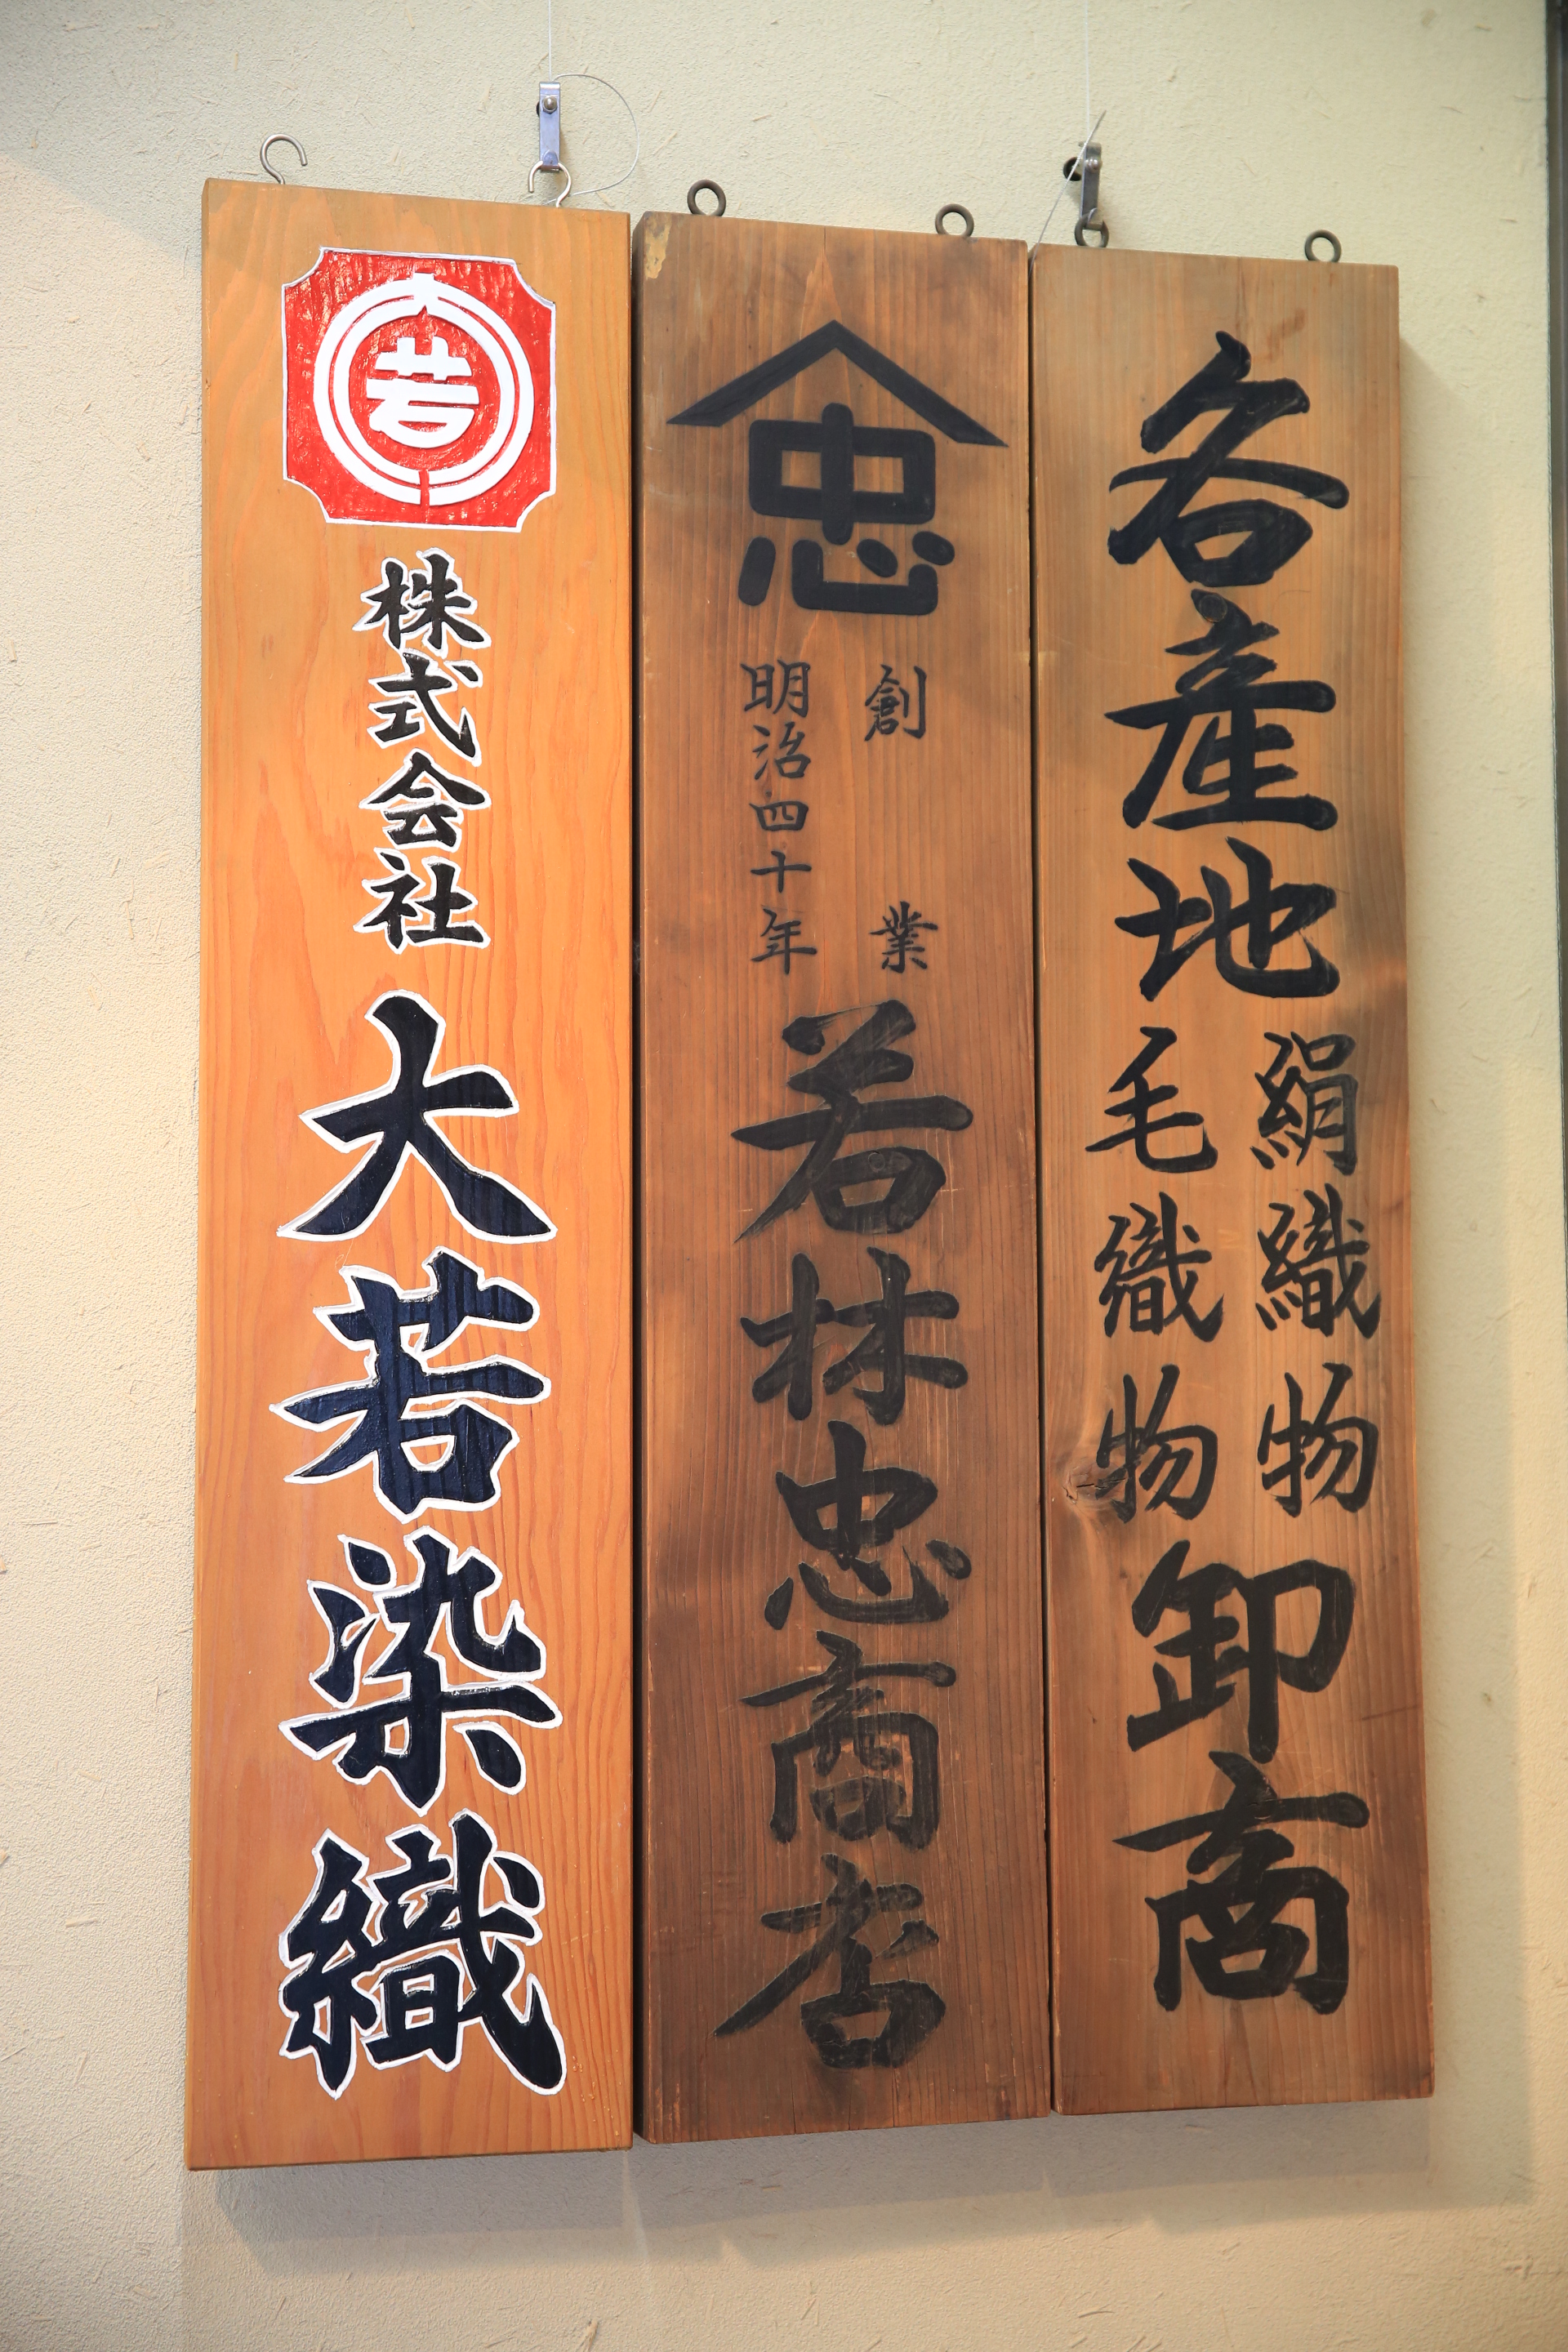 各産地
絹織物
毛織物
卸商
忠
創業
明治四十年
若林忠商店
若
株式会社
大若染織